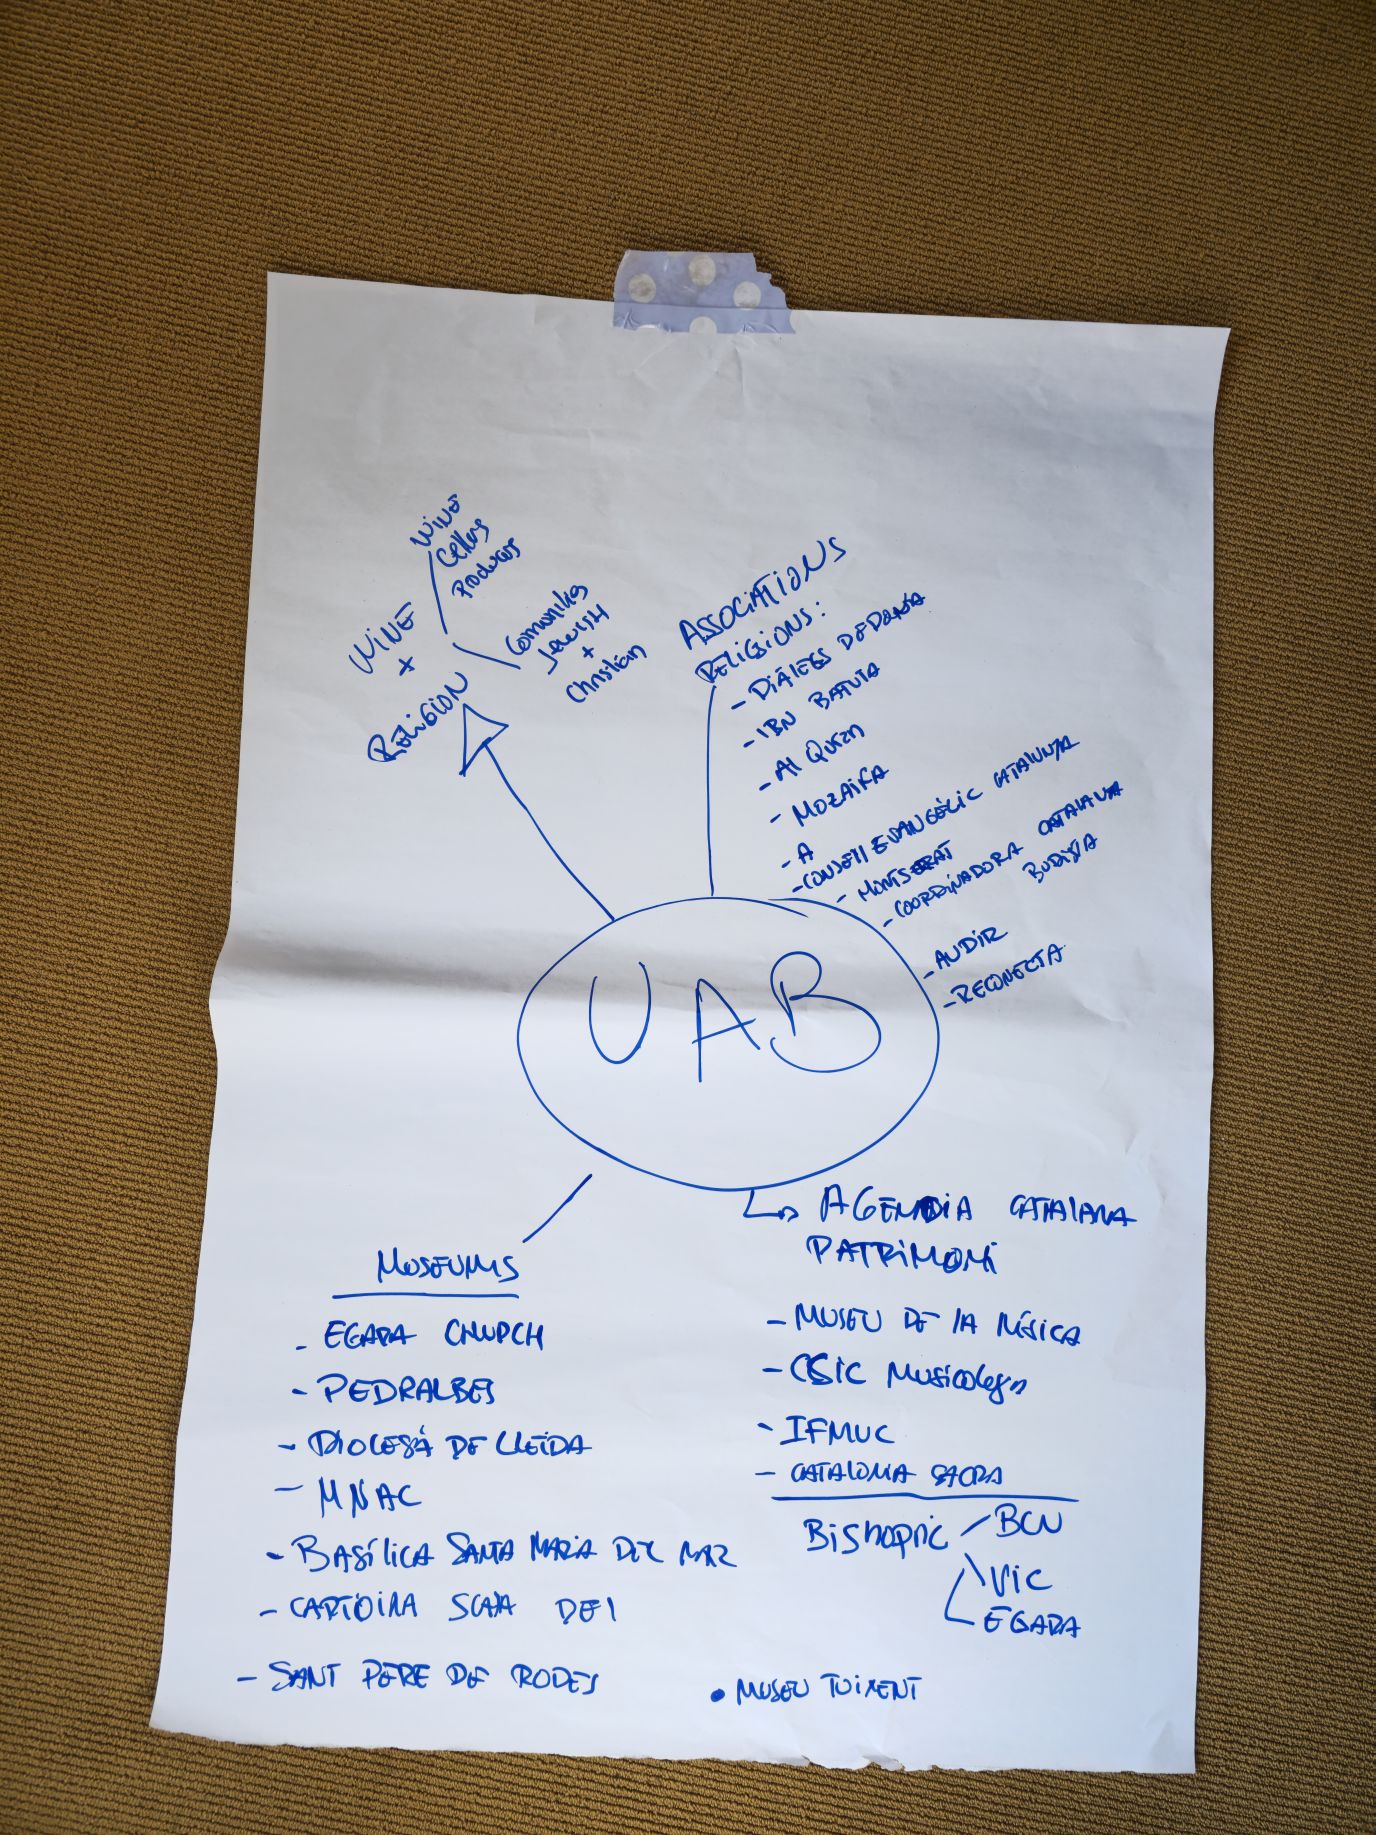 WINE
Cellers
Producers
WINE
+
RELIGION
Comunities
Jewish
+
Christian
ASSOCIATIONS
RELIGIONS:
- DIÀLEGS DE DONA
- IBN BATUTA
- Al Quran
- MOZAIKA
- A
- CONSELL EVANGÈLIC CATALUNYA
- MONTSERRAT
- COORDINADORA CATALANA
BUDISTA
- AUDIR
- RECONECTA
UAB
MUSEUMS
- EGARA CHURCH
- PEDRALBES
- DIOCESÀ DE LLEIDA
- MNAC
- BASÍLICA SANTA MARIA DEL MAR
- CARTOIXA SCALA DEI
- SANT PERE DE RODES
AGENCIA CATALANA
PATRIMONI
- MUSEU DE LA MÚSICA
- CSIC Musicology
- IFMUC
- CATALONIA SACRA
Bishopric BCN
VIC
EGARA
• MUSEU TUIXENT